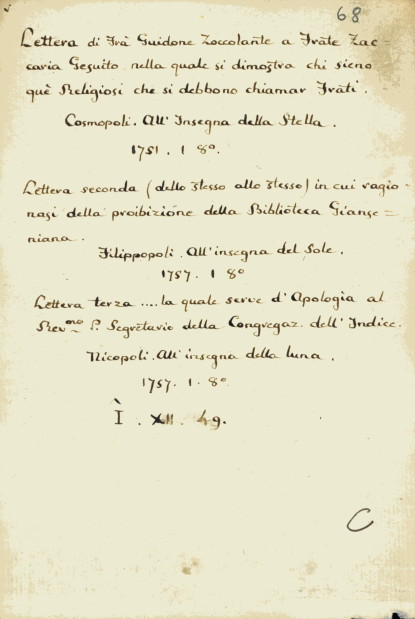 68
Lettera di Frà Guidone Zoccolante a Frate Zac-
caria Gesuito nella quale si dimostra chi sieno
què Religiosi che si debbono chiamar Frati.
Cosmopoli. All' Insegna della Stella.
1751. 1 8º.
Lettera seconda (dello stesso allo stesso) in cui ragio-
nasi della proibizióne della Biblióteca Gianse-
niana.
Filippopoli. All'insegna del Sole.
1757. 1 8º
Lettera terza .... la quale serve d'Apologia al
Rev.mo P. Segretario della Congregaz. dell'Indice.
Nicopoli. All'insegna della luna.
1757. 1. 8º
Ì. XII. 49.
C